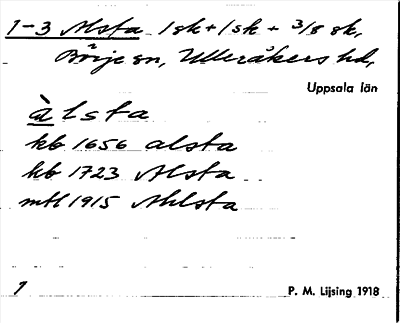 1-3 Alsta 1sk+1sk+ 3/8 sk,
Börje sn, Ulleråkers hd,
Uppsala län
àlsta
kb 1656 alsta
kb 1723 Alsta
mtl 1915 Ahlsta
1 P. M. Lijsing 1918